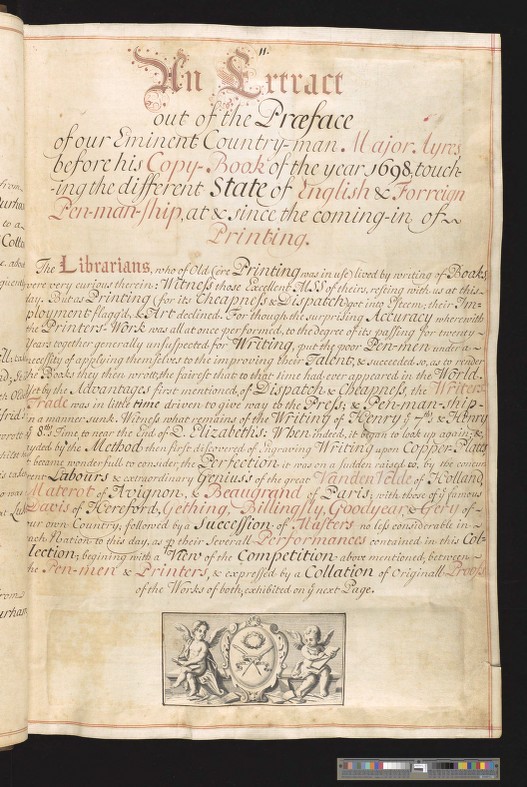 11.
An Extract
out of the Præface
of our Eminent Country-man Major Ayres
before his Copy-Book of the year 1698, touch-
-ing the different State of English & Forreign
Pen-man-ship, at & since the coming-in of
Printing.
The Librarians, who of Old (ere Printing was in use) lived by writing of Books
were very curious therein: Witness those Excellent MSS of theirs, resting with us at this
day. But as Printing (for its Cheapness & Dispatch) got into Esteem; their Im=
ployment flagg'd, & Art declined. For though the surprising Accuracy wherewith
the Printers-Work was all at once performed, to the degree of its passing for twenty-
Years together generally unsuspected for Writing, put the poor Pen-men under a
necessity of applying themselves to the improving their Talent, & succeeded so, as to render
the Books they then wrott, the fairest that to that time had ever appeared in the World.
Yet by the Advantages first mentioned, of Dispatch & Cheapness, the Writers
Trade was in little time driven to give way to the Press; & Pen-man-ship
in a manner sunk. Witness what remains of the Writing of Henry ye 7ths & Henry
ye 8ths Time, to near the End of Q. Elizabeth's: When indeed, it began to look up again; &
ayded by the Method then first discovered of Ingraving Writing upon Copper-Plates
it became wonderfull to consider, the Perfection it was on a sudden raised to, by the concur
rent Labours & extraordinary Genius's of the great Vanden Velde of Holland,
Materot of Avignon, & Beaugrand of Paris; with those of ye famous
Davis of Hereford, Gething, Billingsly, Goodyear, & Gery of
our own Country; followed by a Succession of Masters no less considerable in
each Nation to this day, as p their Severall Performances contained in this Col-
lection; begining with a View of the Competition above mentioned, between
the Pen-men & Printers, & expressed by a Collation of Originall Proofs
of the Works of both, exhibited on ye next Page.